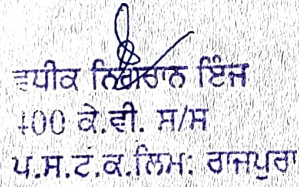 ਵਧੀਕ ਨਿਗਰਾਨ ਇੰਜ
400 ਕੇ.ਵੀ. ਸ/ਸ
ਪ.ਸ.ਟ.ਕ.ਲਿਮ: ਰਾਜਪੁਰਾ